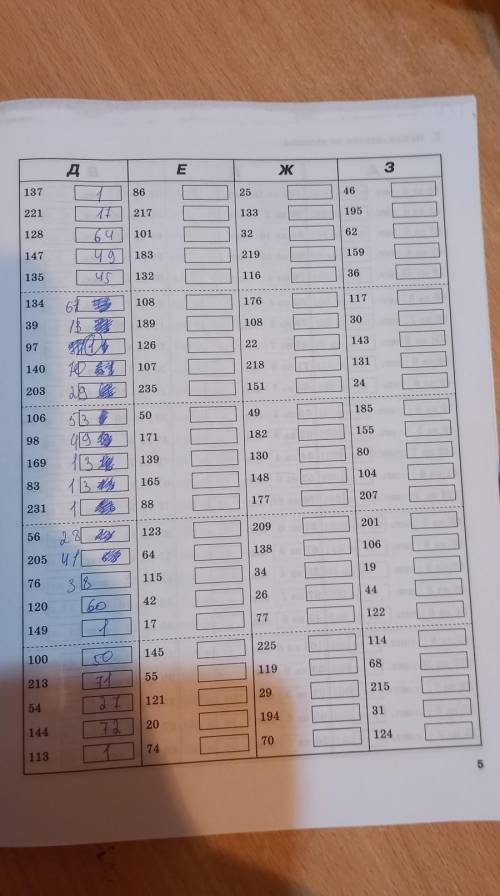 Д Е Ж З
137 1 86 25 46
221 17 217 133 195
128 64 101 32 62
147 49 183 219 159
135 45 132 116 36
134 67 108 176 117
39 13 189 108 30
97 126 22 143
140 70 107 218 131
203 29 235 151 24
106 53 50 49 185
98 49 171 182 155
169 13 139 130 80
83 1 165 148 104
231 1 88 177 207
56 28 123 209 201
205 41 64 138 106
76 38 115 34 19
120 60 42 26 44
149 1 17 77 122
100 50 145 225 114
213 71 55 119 68
54 27 121 29 215
144 72 20 194 31
113 1 74 70 124
5